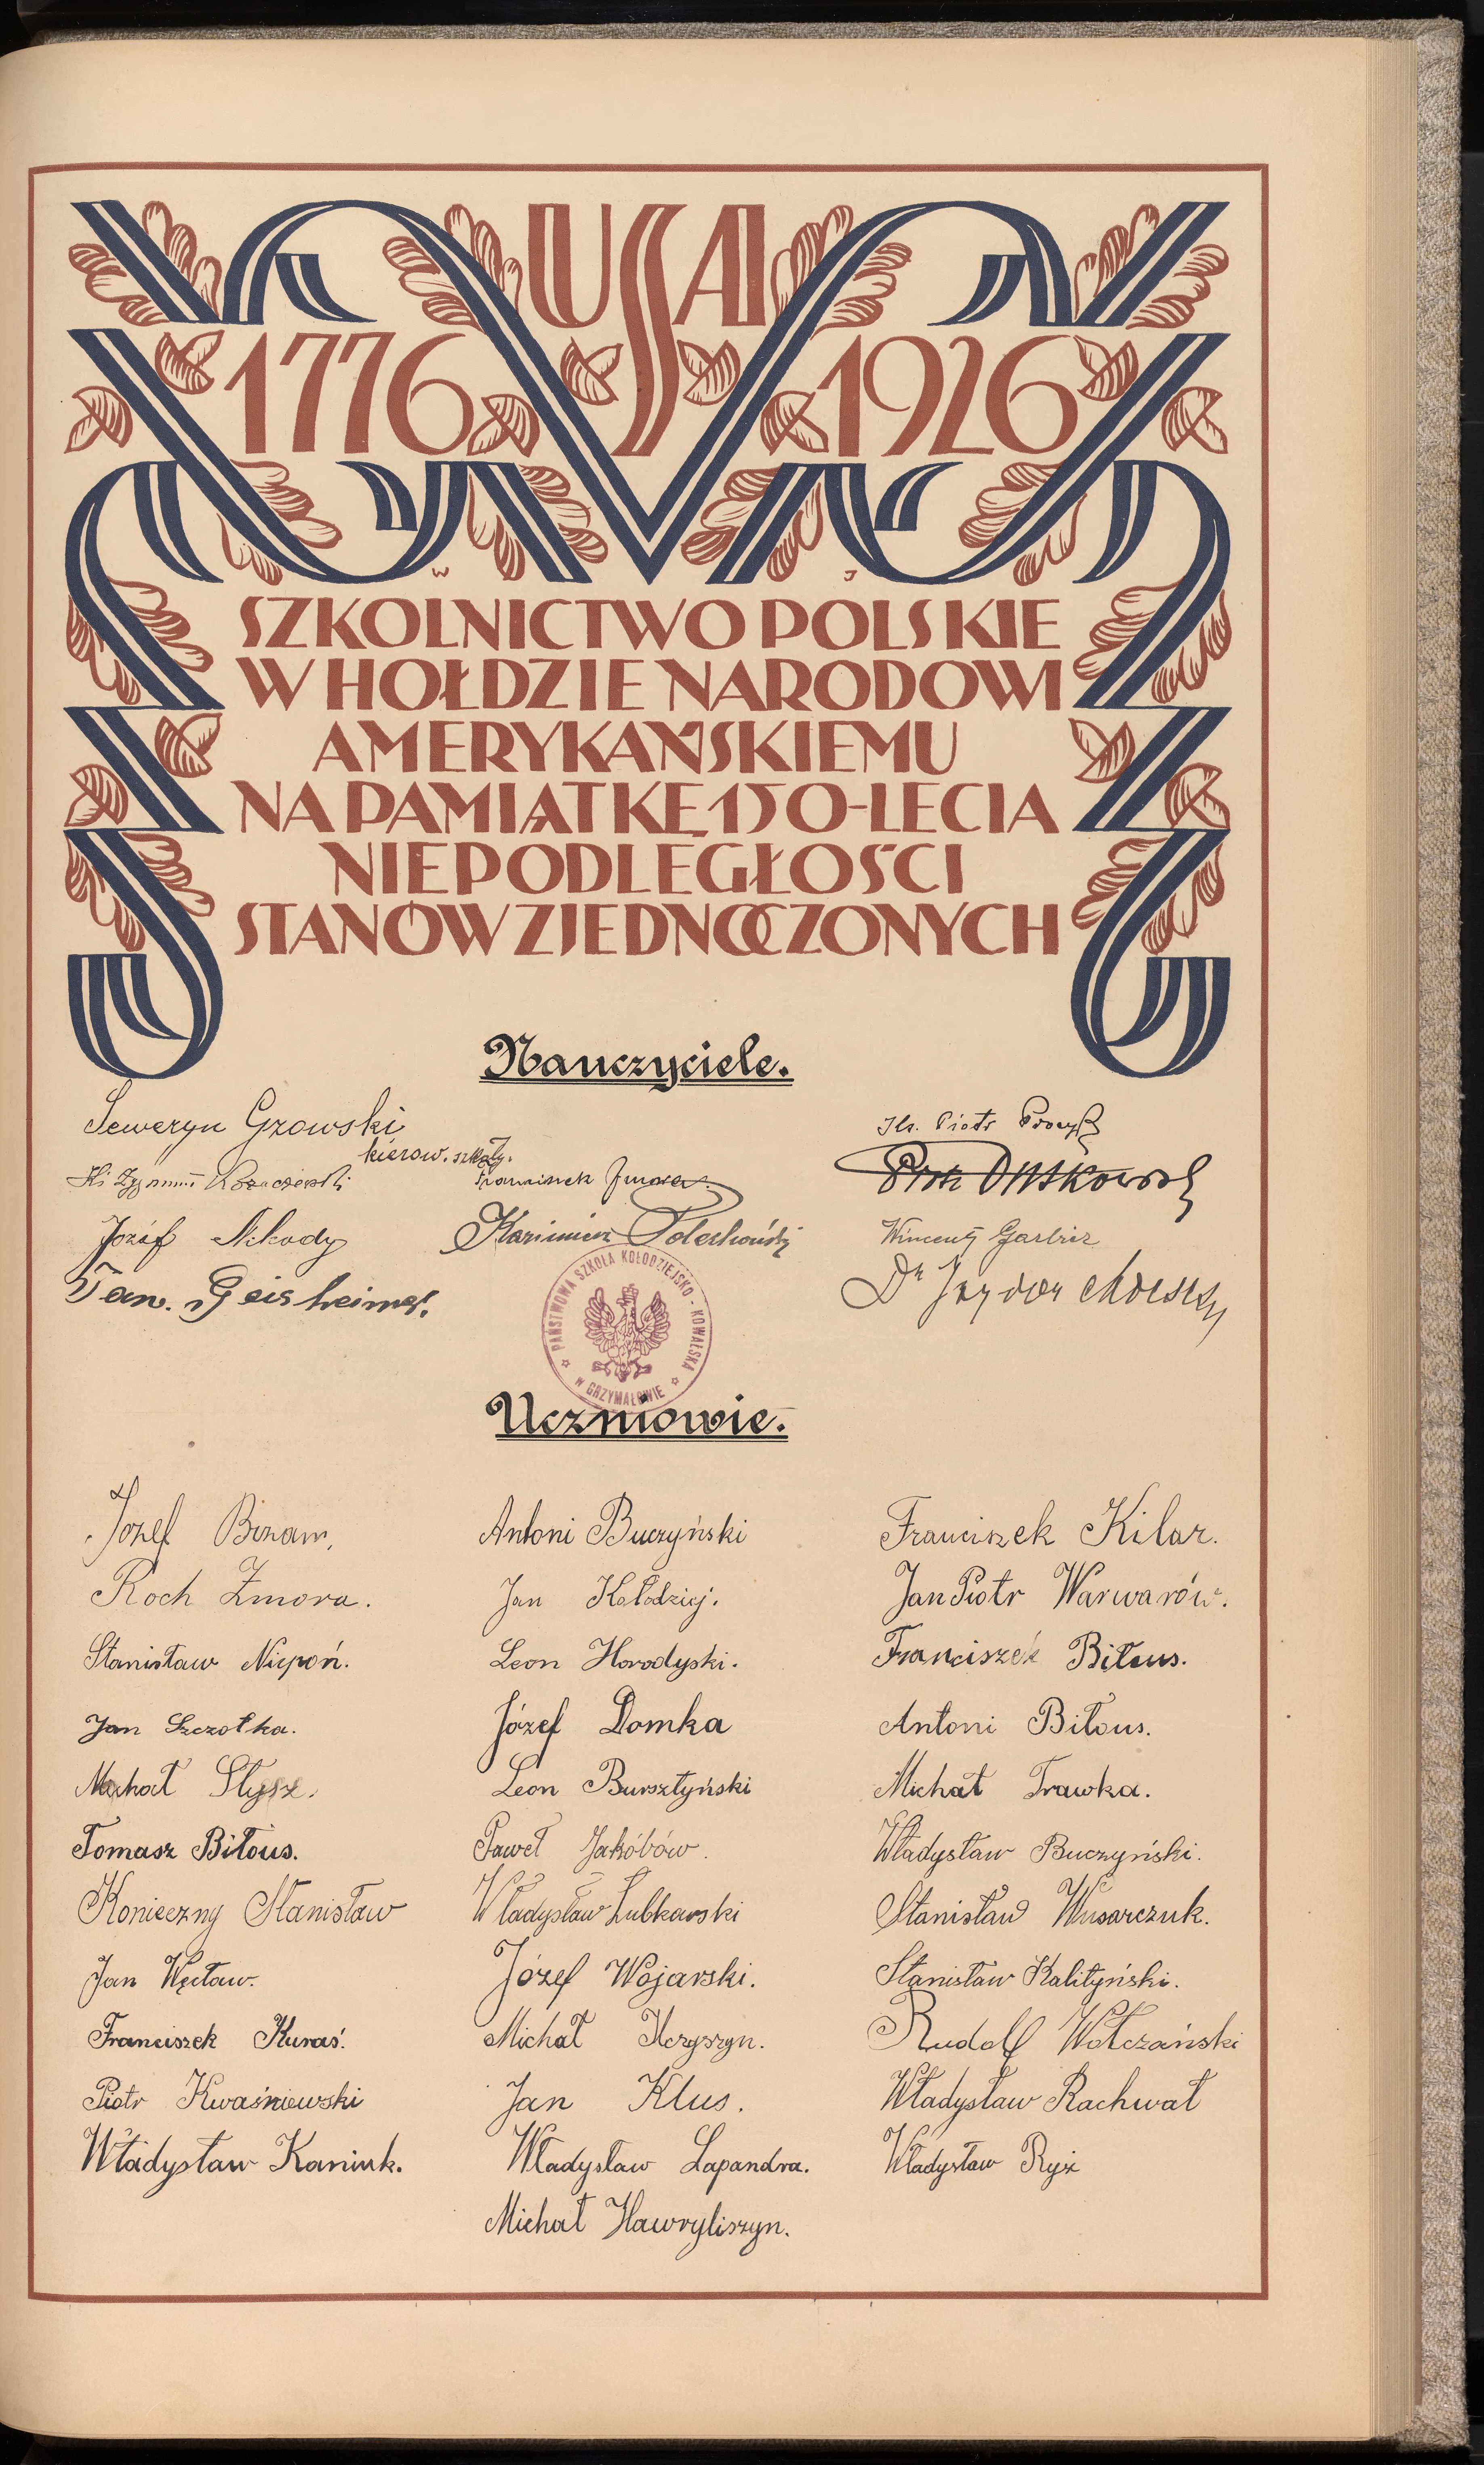 USA
1776 1926
W J
SZKOLNICTWO POLSKIE
W HOŁDZIE NARODOWI
AMERYKAŃSKIEMU
NA PAMIĄTKĘ 150-LECIA
NIEPODLEGŁOŚCI
STANÓW ZJEDNOCZONYCH
Nauczyciele.
Seweryn Gzowski
kierow. szkoły.
Ks. Piotr
Franciszek
Piotr
Józef Nikody
Kazimierz
Wincenty Garbicz
Jan. Geisheimer.
Dr Izydor
PAŃSTWOWA SZKOŁA KOŁODZIEJSKO-KOWALSKA
W GRZYMAŁOWIE
Uczniowie.
Józef Binam,
Antoni Buczyński
Franciszek Kilar.
Roch Zmora.
Jan Kołodziej.
Jan Piotr Warwarów.
Stanisław Niepoń.
Leon Horodyski.
Franciszek Biłous.
Jan Szczotka.
Józef Domka
Antoni Biłous.
Michał Słysz.
Leon Bursztyński
Michał Trawka.
Tomasz Biłous.
Paweł Jakóbów.
Władysław Buczyński.
Konieczny Stanisław
Władysław Lubkowski
Stanisław Wusarczuk.
Jan Węcław.
Józef Wojarski.
Stanisław Kalityński.
Franciszek Kuraś.
Michał Krzyszyn.
Rudolf Wołczański
Piotr Kwaśniewski
Jan Klus.
Władysław Rachwał
Władysław Kaniuk.
Władysław Łapandra.
Władysław Ryż
Michał Hawryliszyn.